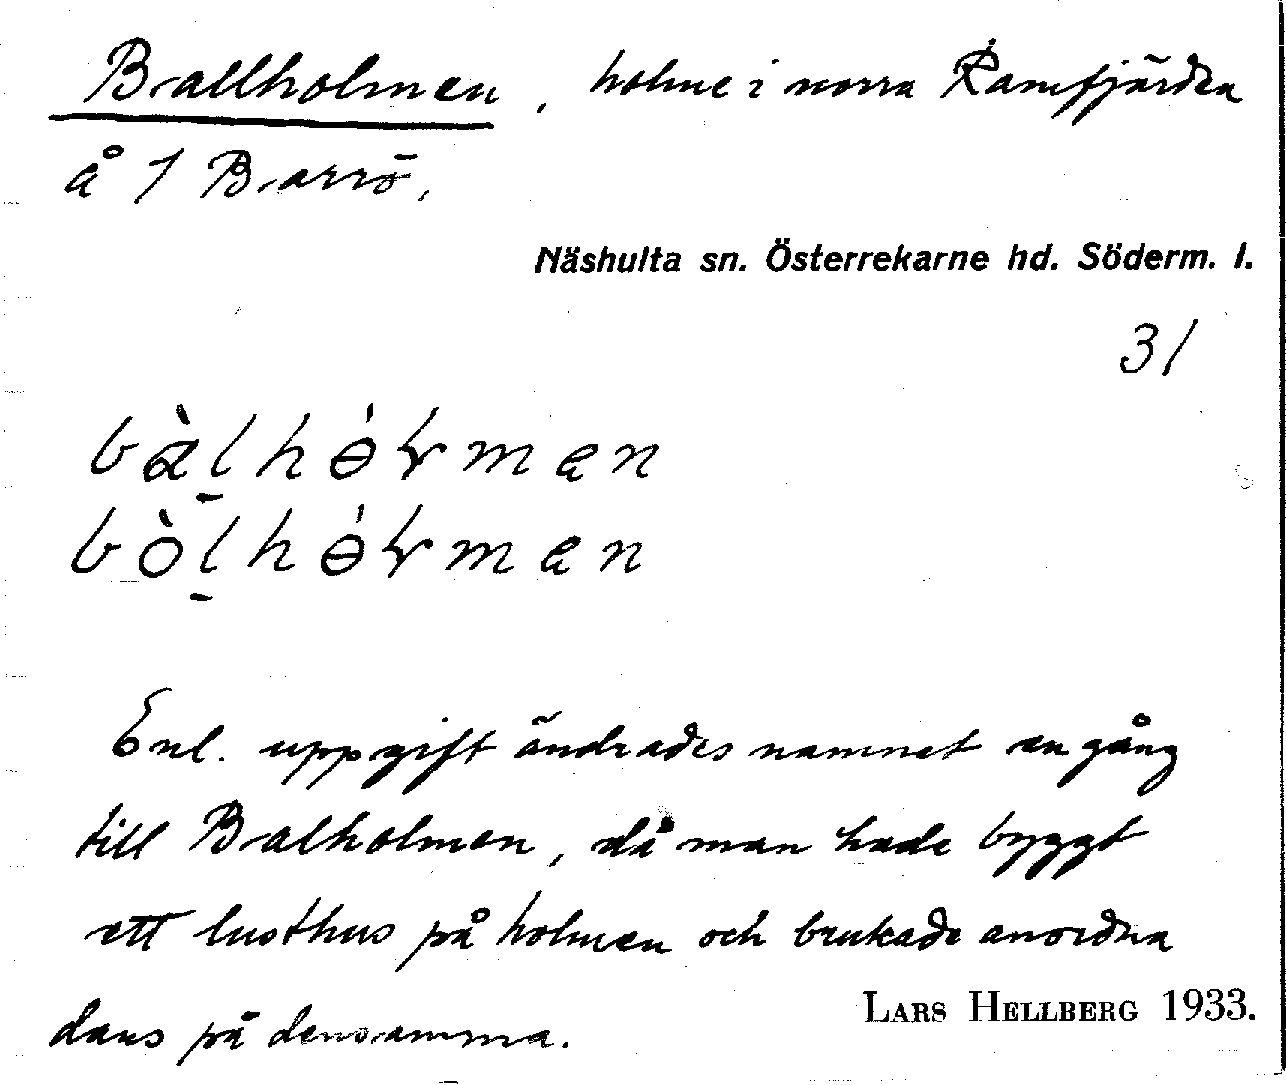 Ballholmen, holme i norra Ramfjärden
å 1 Barrö.
Näshulta sn. Österrekarne hd. Söderm. l.
31
bàlhólmen
bòlhólmen
Enl. uppgift ändrades namnet en gång
till Balholmen, då man hade byggt
ett lusthus på holmen och brukade anordna
dans på densamma.
LARS HELLBERG 1933.